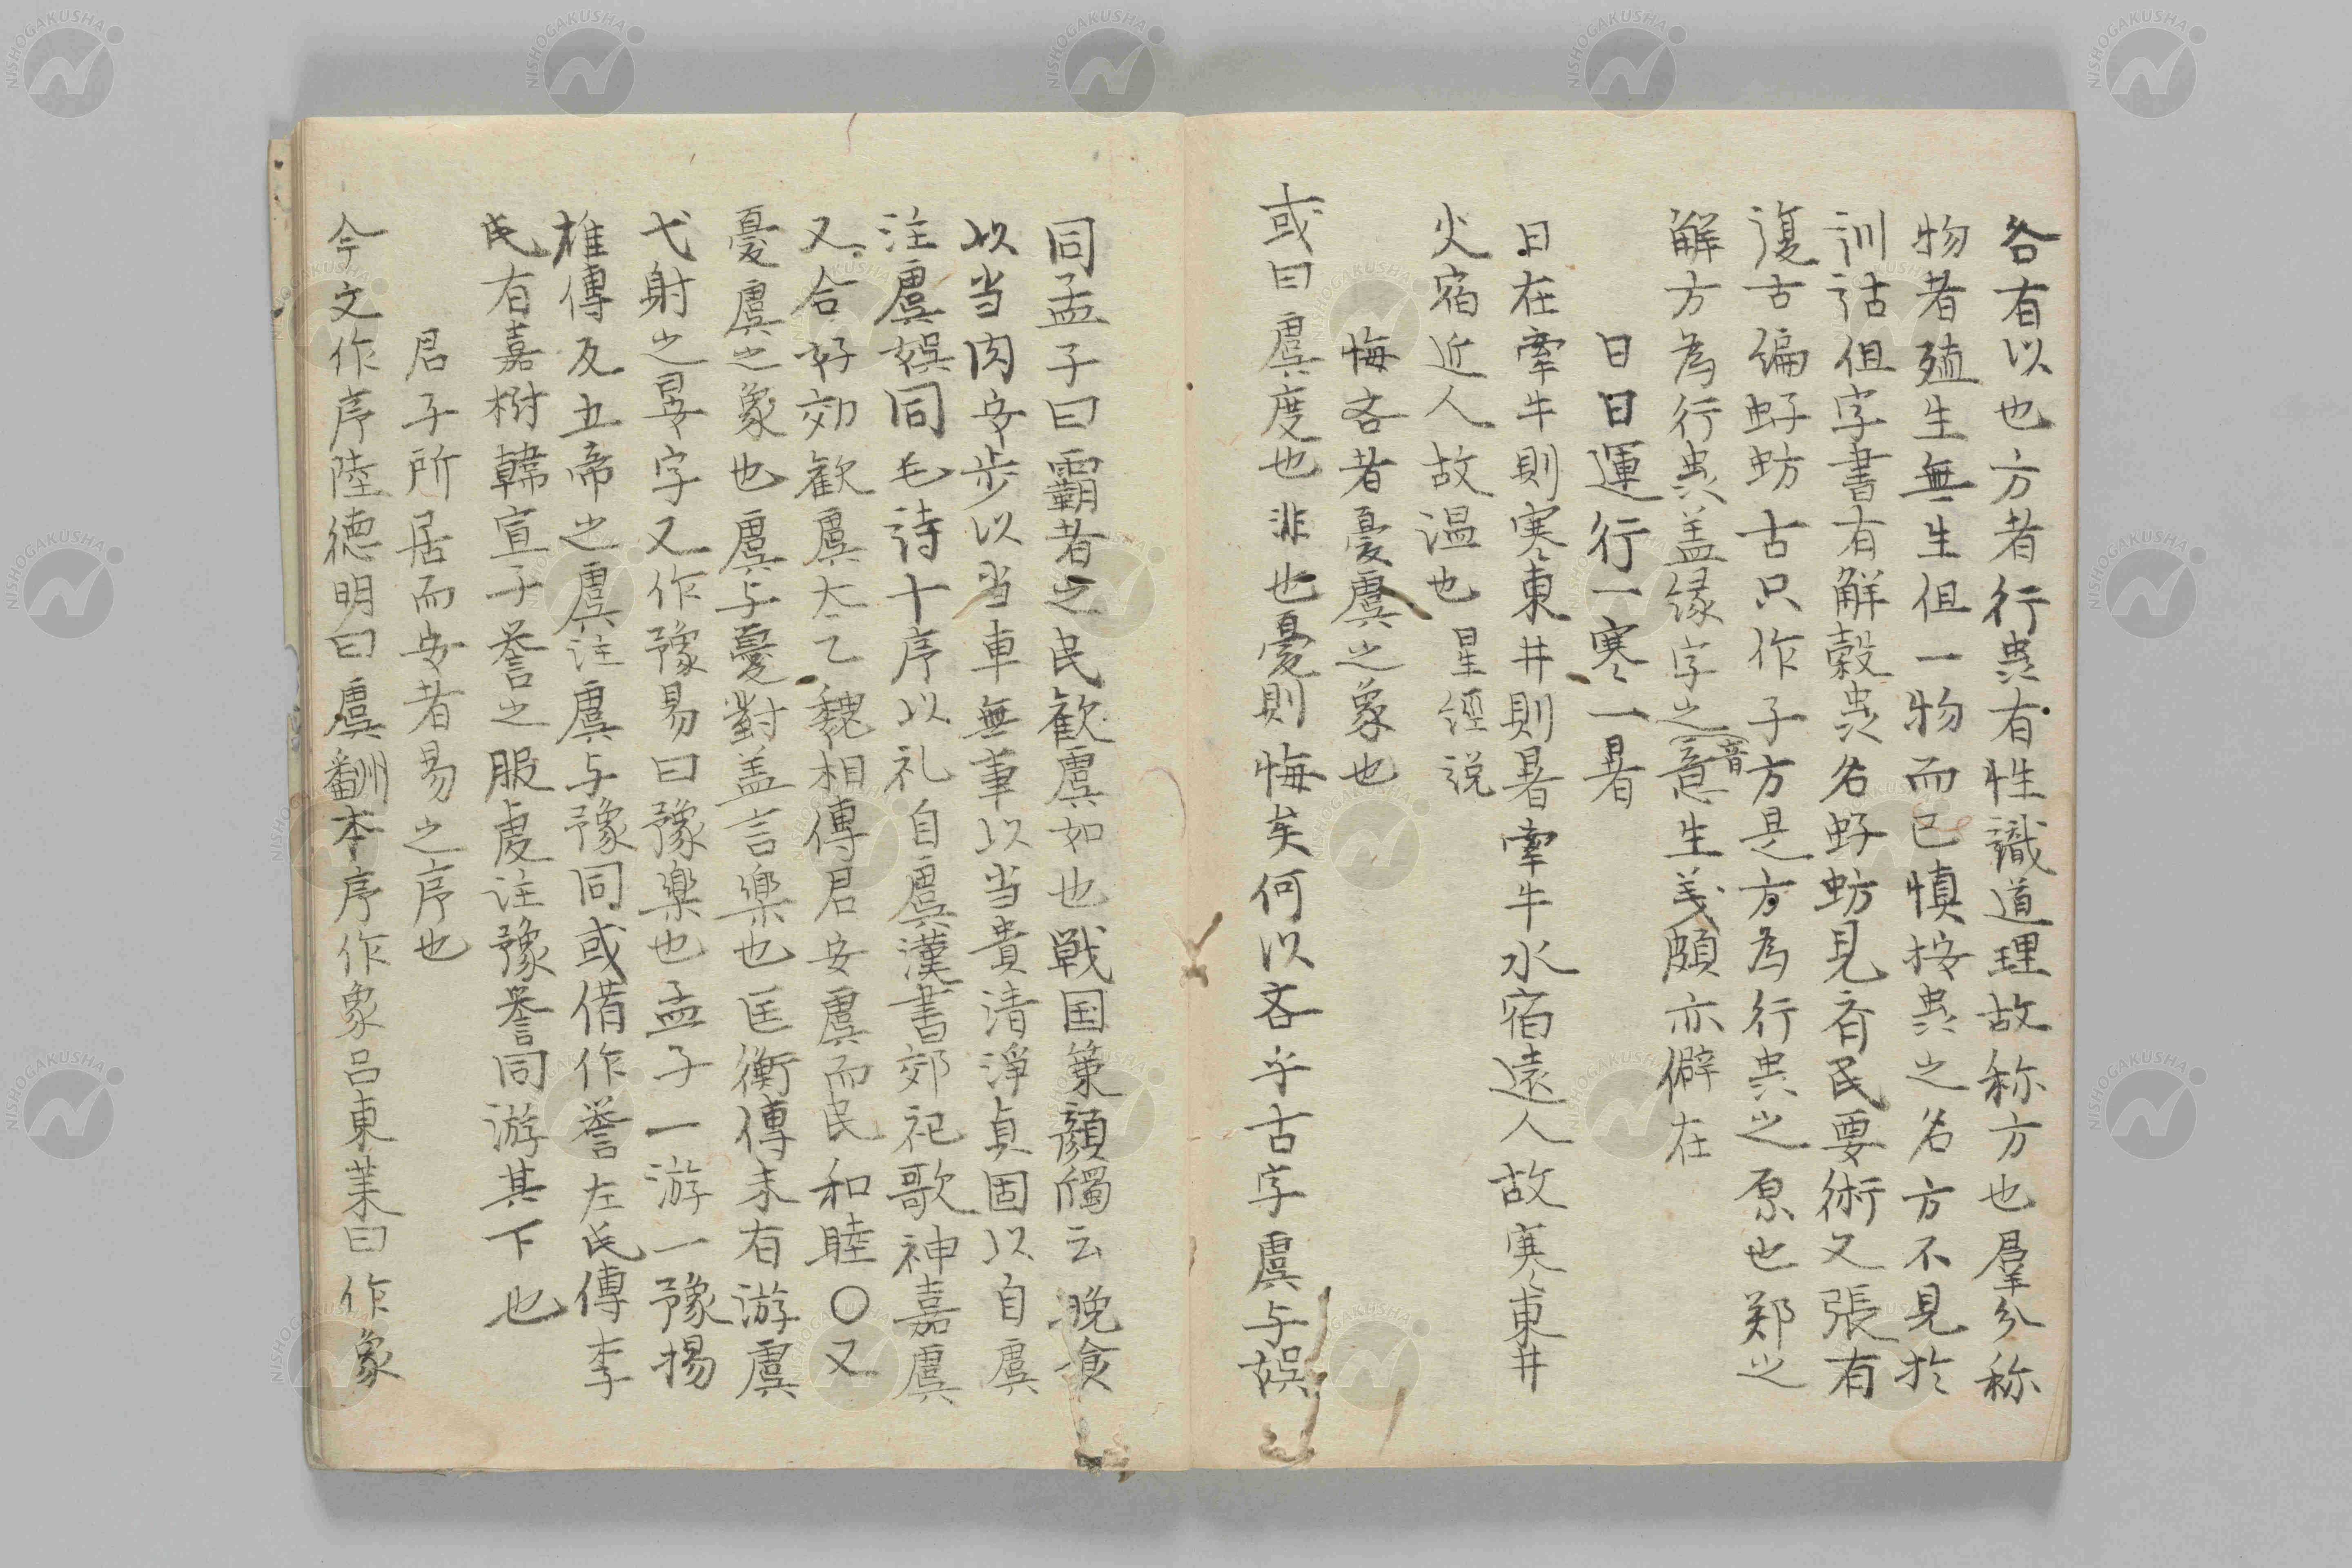 各有以也方者行虫有性識道理故称方也羣分称
物者殖生無生但一物而已慎按虫之名方不見於
訓詁但字書有解穀虫名虸蚄見斉民要術又張有
復古編虸蚄古只作子方是方為行虫之原也郑之
解方為行虫盖縁字之音意生義頗亦僻在
日日運行一寒一暑
日在牽牛則寒東井則暑牽牛水宿遠人故寒東井
火宿近人故温也星經説
悔吝者憂虞之象也
或曰虞度也非也憂則悔矣何以吝乎古字虞与娯
同孟子曰霸者之民歓虞如也戦国策顔斶云晩食
以当肉安歩以当車無事以当貴清浄貞固以自虞
注虞娯同毛詩十序以礼自虞漢書郊祀歌神嘉虞
又合好効歓虞太乙魏相傳君安虞而民和睦〇又
憂虞之象也虞与憂對盖言樂也匡衡傳未有游虞
弋射之晏字又作豫易曰豫樂也孟子一游一豫揚
雄傳反五帝之虞注虞与豫同或借作誉左氏傳季
氏有嘉樹韓宣子誉之服虔注豫誉同游其下也
君子所居而安者易之序也
今文作序陸徳明曰虞翻本序作象呂東萊曰作象
NISHOGAKUSHA